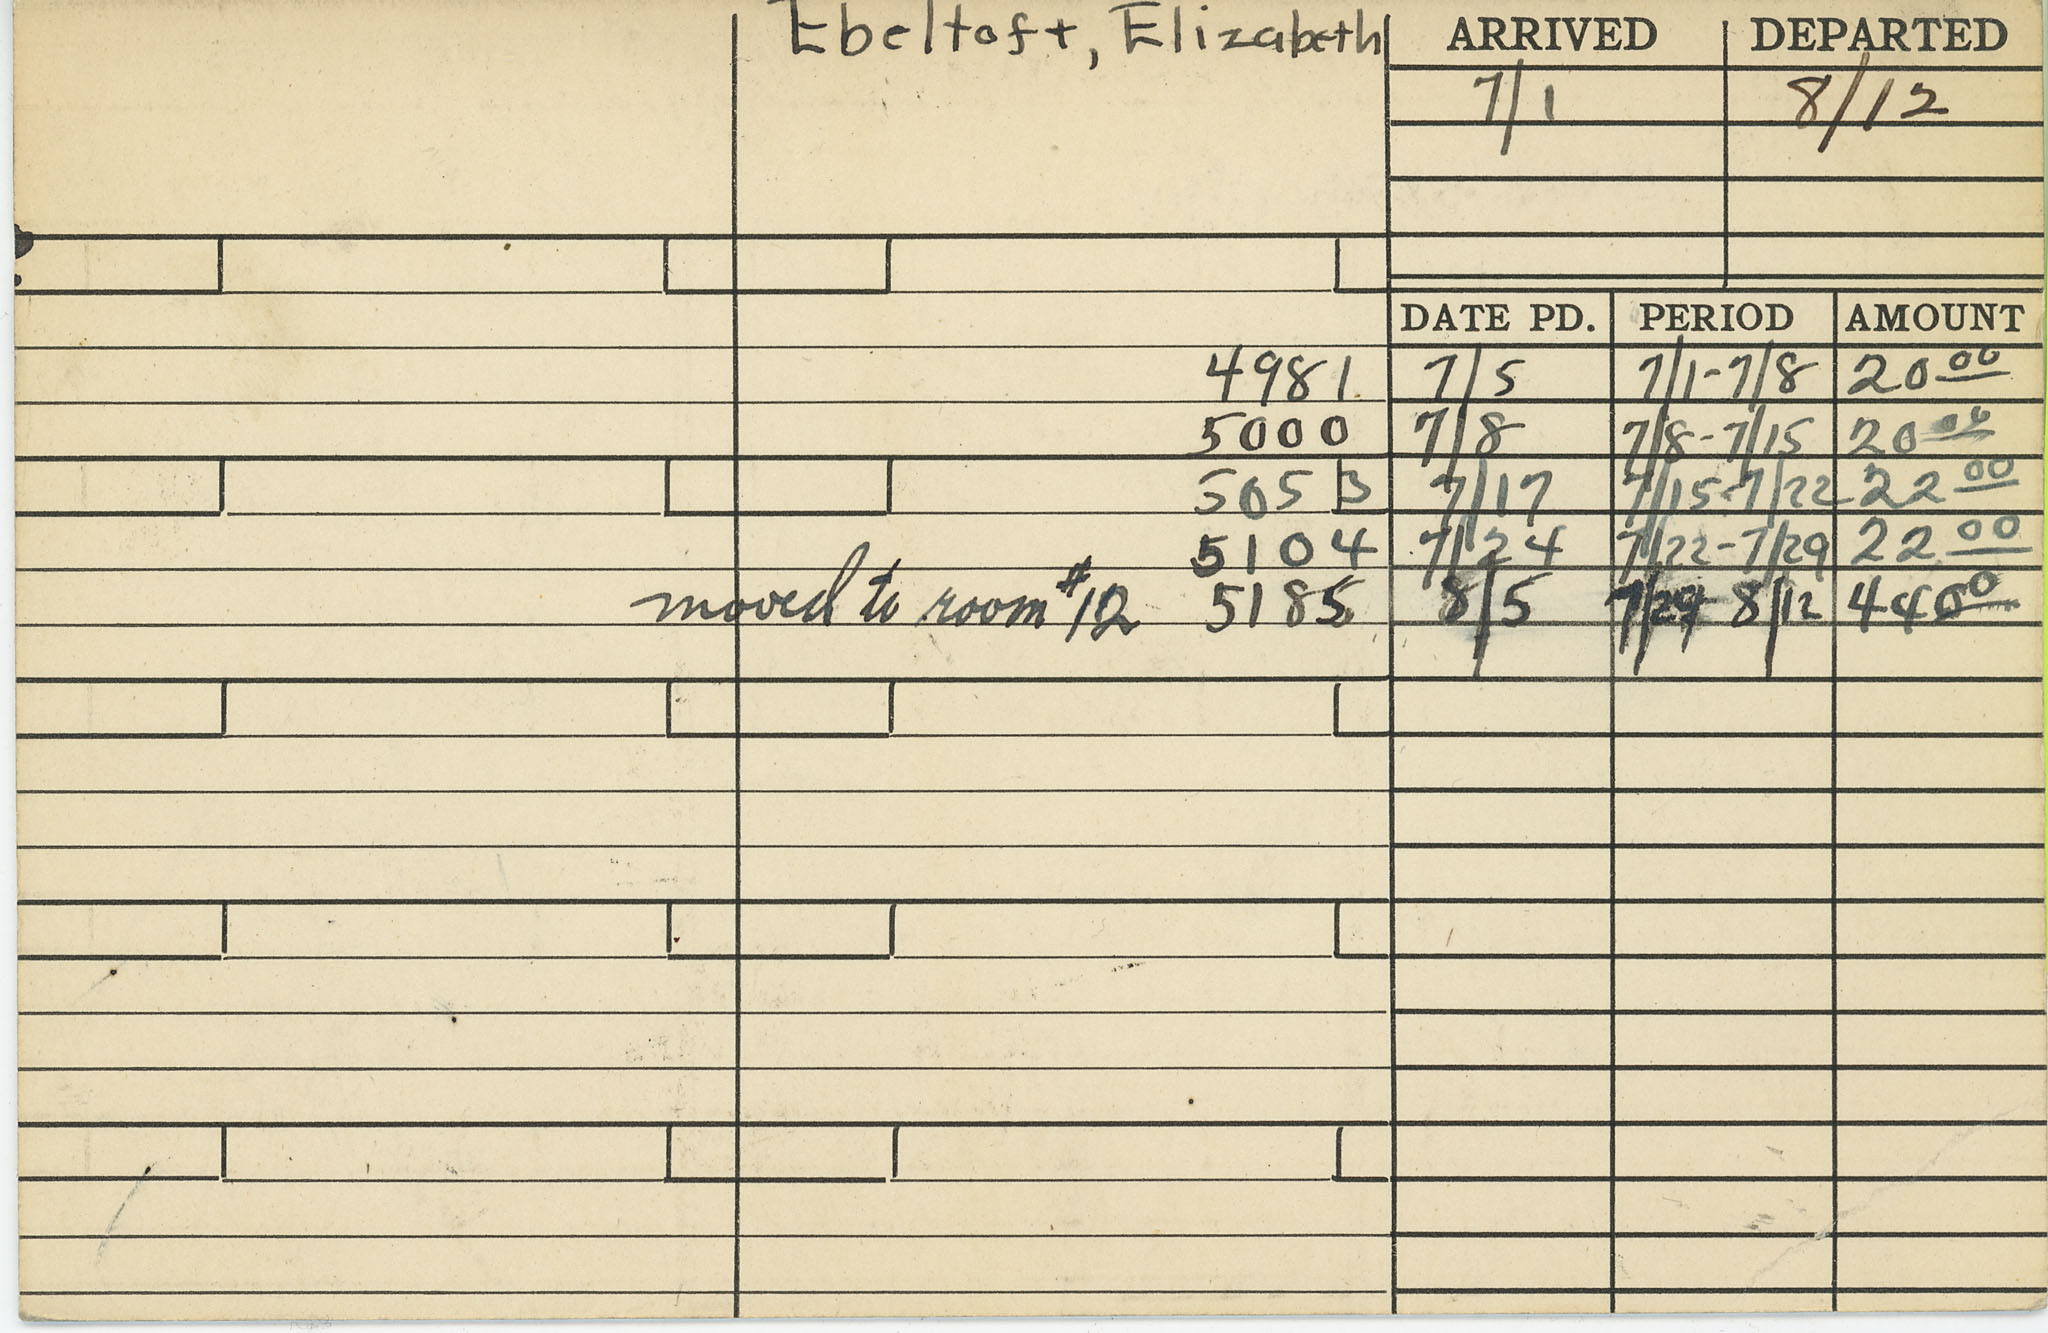 Ebeltoft, Elizabeth ARRIVED DEPARTED
7/1 8/12
DATE PD. PERIOD AMOUNT
4981 7/5 7/1-7/8 20 00
5000 7/8 7/8-7/15 20 00
5053 7/17 7/15-7/22 22 00
5104 7/24 7/22-7/29 22 00
moved to room #12 5185 8/5 7/29 8/12 44 00